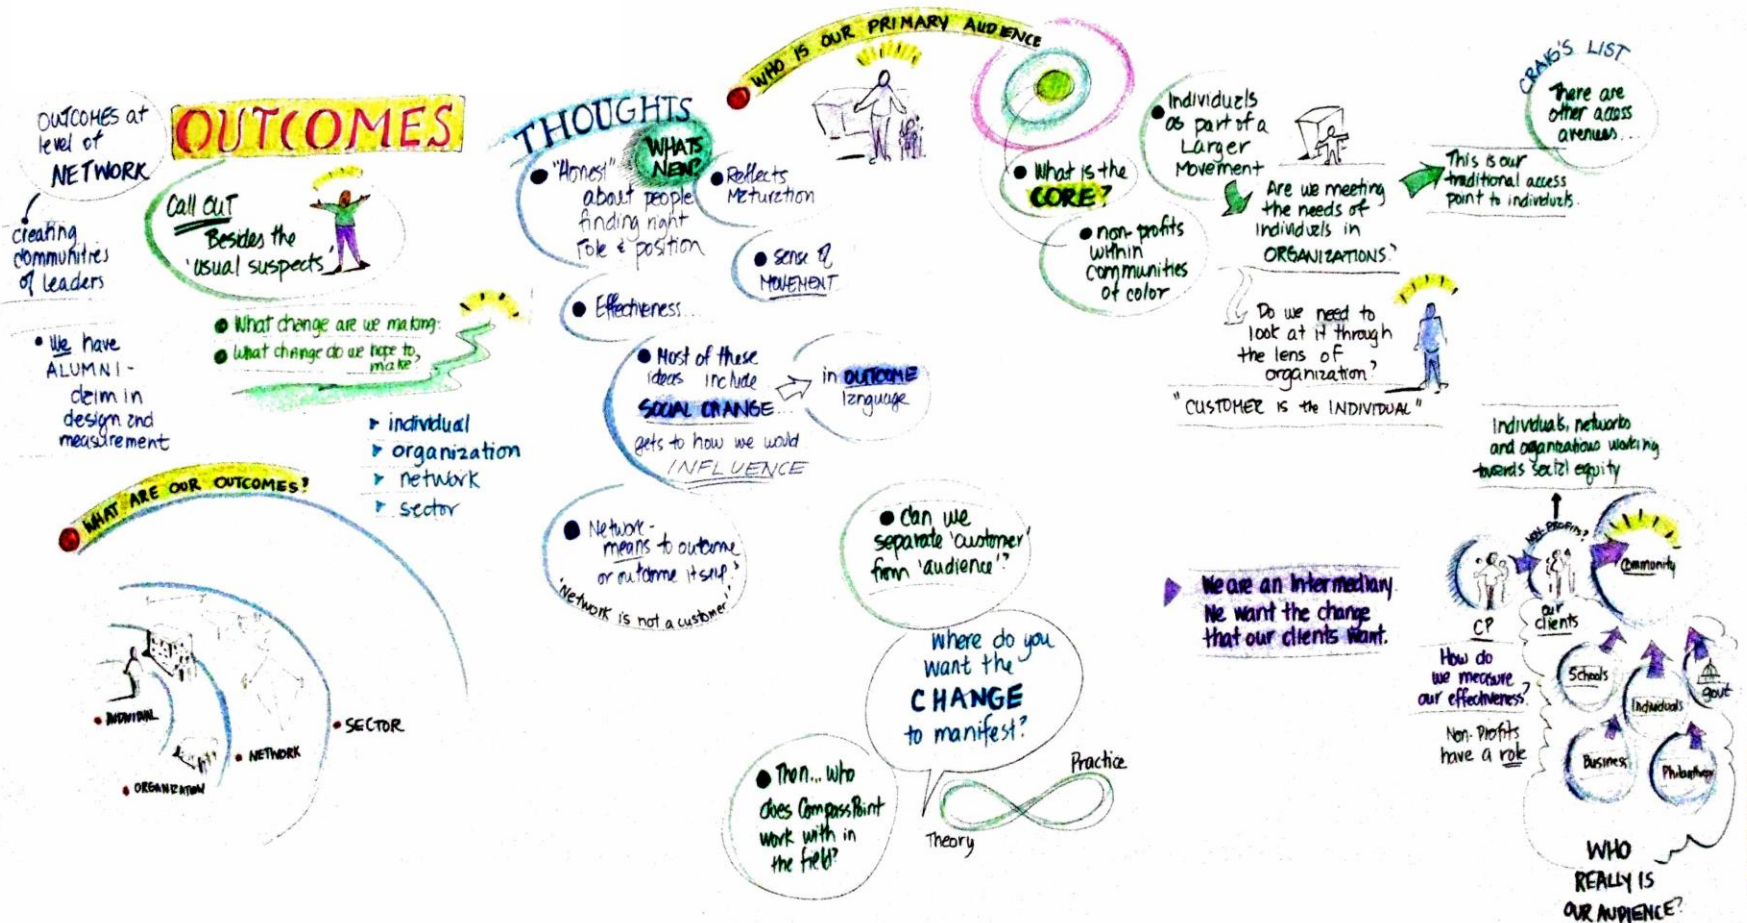 OUTCOMES at
level of
NETWORK
creating
communities
of leaders
• We have
ALUMNI -
claim in
design and
measurement
OUTCOMES
Call OUT
Besides the
'usual suspects'
• What change are we making.
• What change do we hope to
make?
individual
organization
network
sector
WHAT ARE OUR OUTCOMES?
• INDIVIDUAL
• ORGANIZATION
• NETWORK
• SECTOR
THOUGHTS
WHATS
NEW?
• "Honest"
about people
finding right
role & position
• Reflects
Maturation
• sense of
MOVEMENT
• Effectiveness...
• Most of these
ideas include
SOCIAL CHANGE...
gets to how we would
INFLUENCE
in OUTCOME
language
• Network-
means to outcome
or outcome itself?
"Network is not a customer"
WHO IS OUR PRIMARY AUDIENCE
• What is the
CORE?
• non-profits
within
communities
of color
• Individuals
as part of a
Larger
Movement
Are we meeting
the needs of
individuals in
ORGANIZATIONS?
This is our
traditional access
point to individuals.
CRAIG'S LIST
There are
other access
avenues...
Do we need to
look at it through
the lens of
organization?
"CUSTOMER IS the INDIVIDUAL"
• Can we
separate 'customer'
from 'audience'?
Where do you
want the
CHANGE
to manifest?
• Then... who
does CompassPoint
work with in
the field?
Theory
Practice
We are an Intermediary.
We want the change
that our clients want.
Individuals, networks
and organizations working
towards social equity
NON-PROFITS?
Community
CP
our
clients
How do
we measure
our effectiveness?
Non-Profits
have a role
Schools
Individuals
gov't
Business
Philanthropy
WHO
REALLY IS
OUR AUDIENCE?